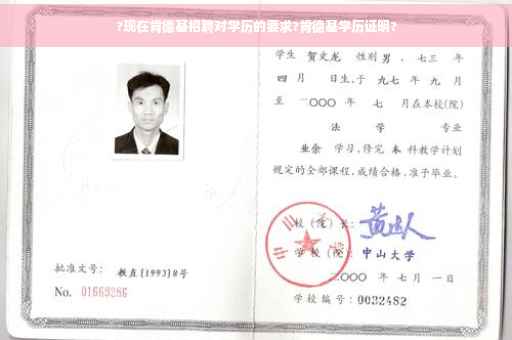 ?现在肯德基招聘对学历的要求?肯德基学历证明?
学生 贺文龙 性别 男 、七三 年
四 月 日生,于 九七 年 九 月
至 二〇〇〇 年 七 月在本校(院)
法 学 专业
业余 学习,修完 本 科教学计划
规定的全部课程,成绩合格,准予毕业。
校 (院) 长:
学 校 (院): 中山大学
二〇〇〇 年 七 月 一 日
批准文号: 教直[1993]8号
No. 01669286
学校编号: 0032482